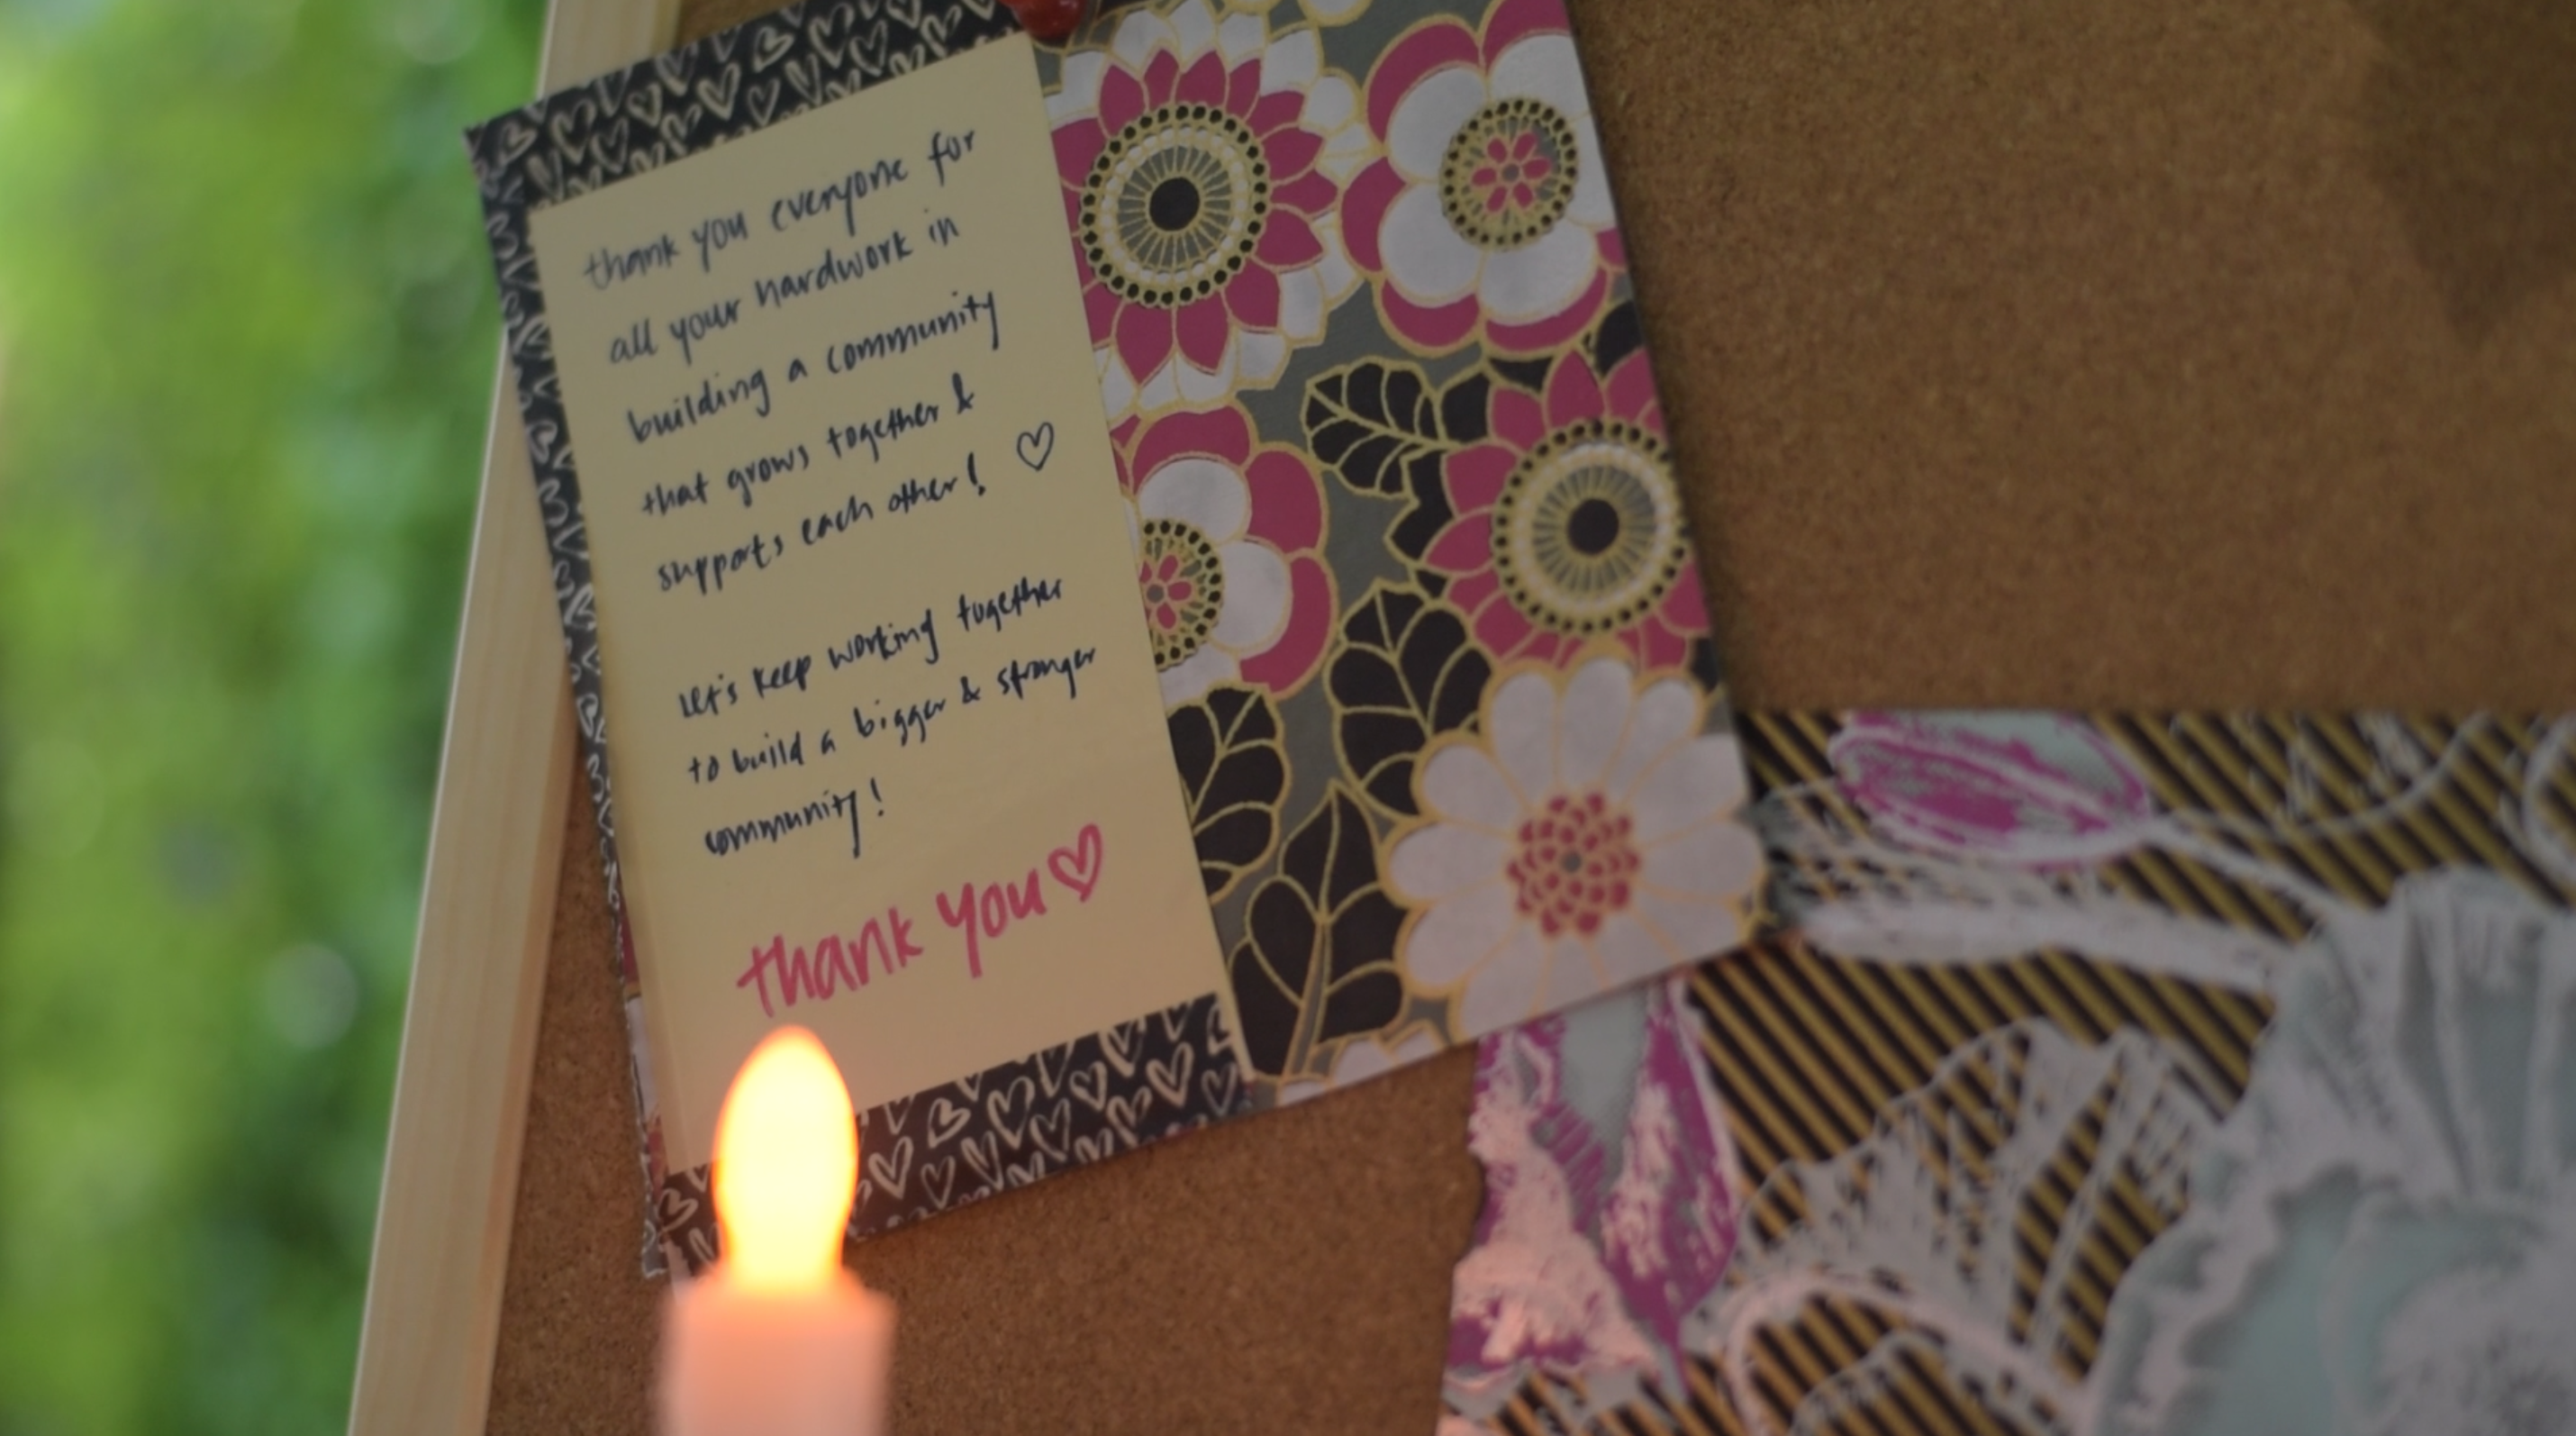 thank you everyone for
all your hardwork in
building a community
that grows together &
supports each other! ♡
Let's keep working together
to build a bigger & stronger
community!
thank you ♡